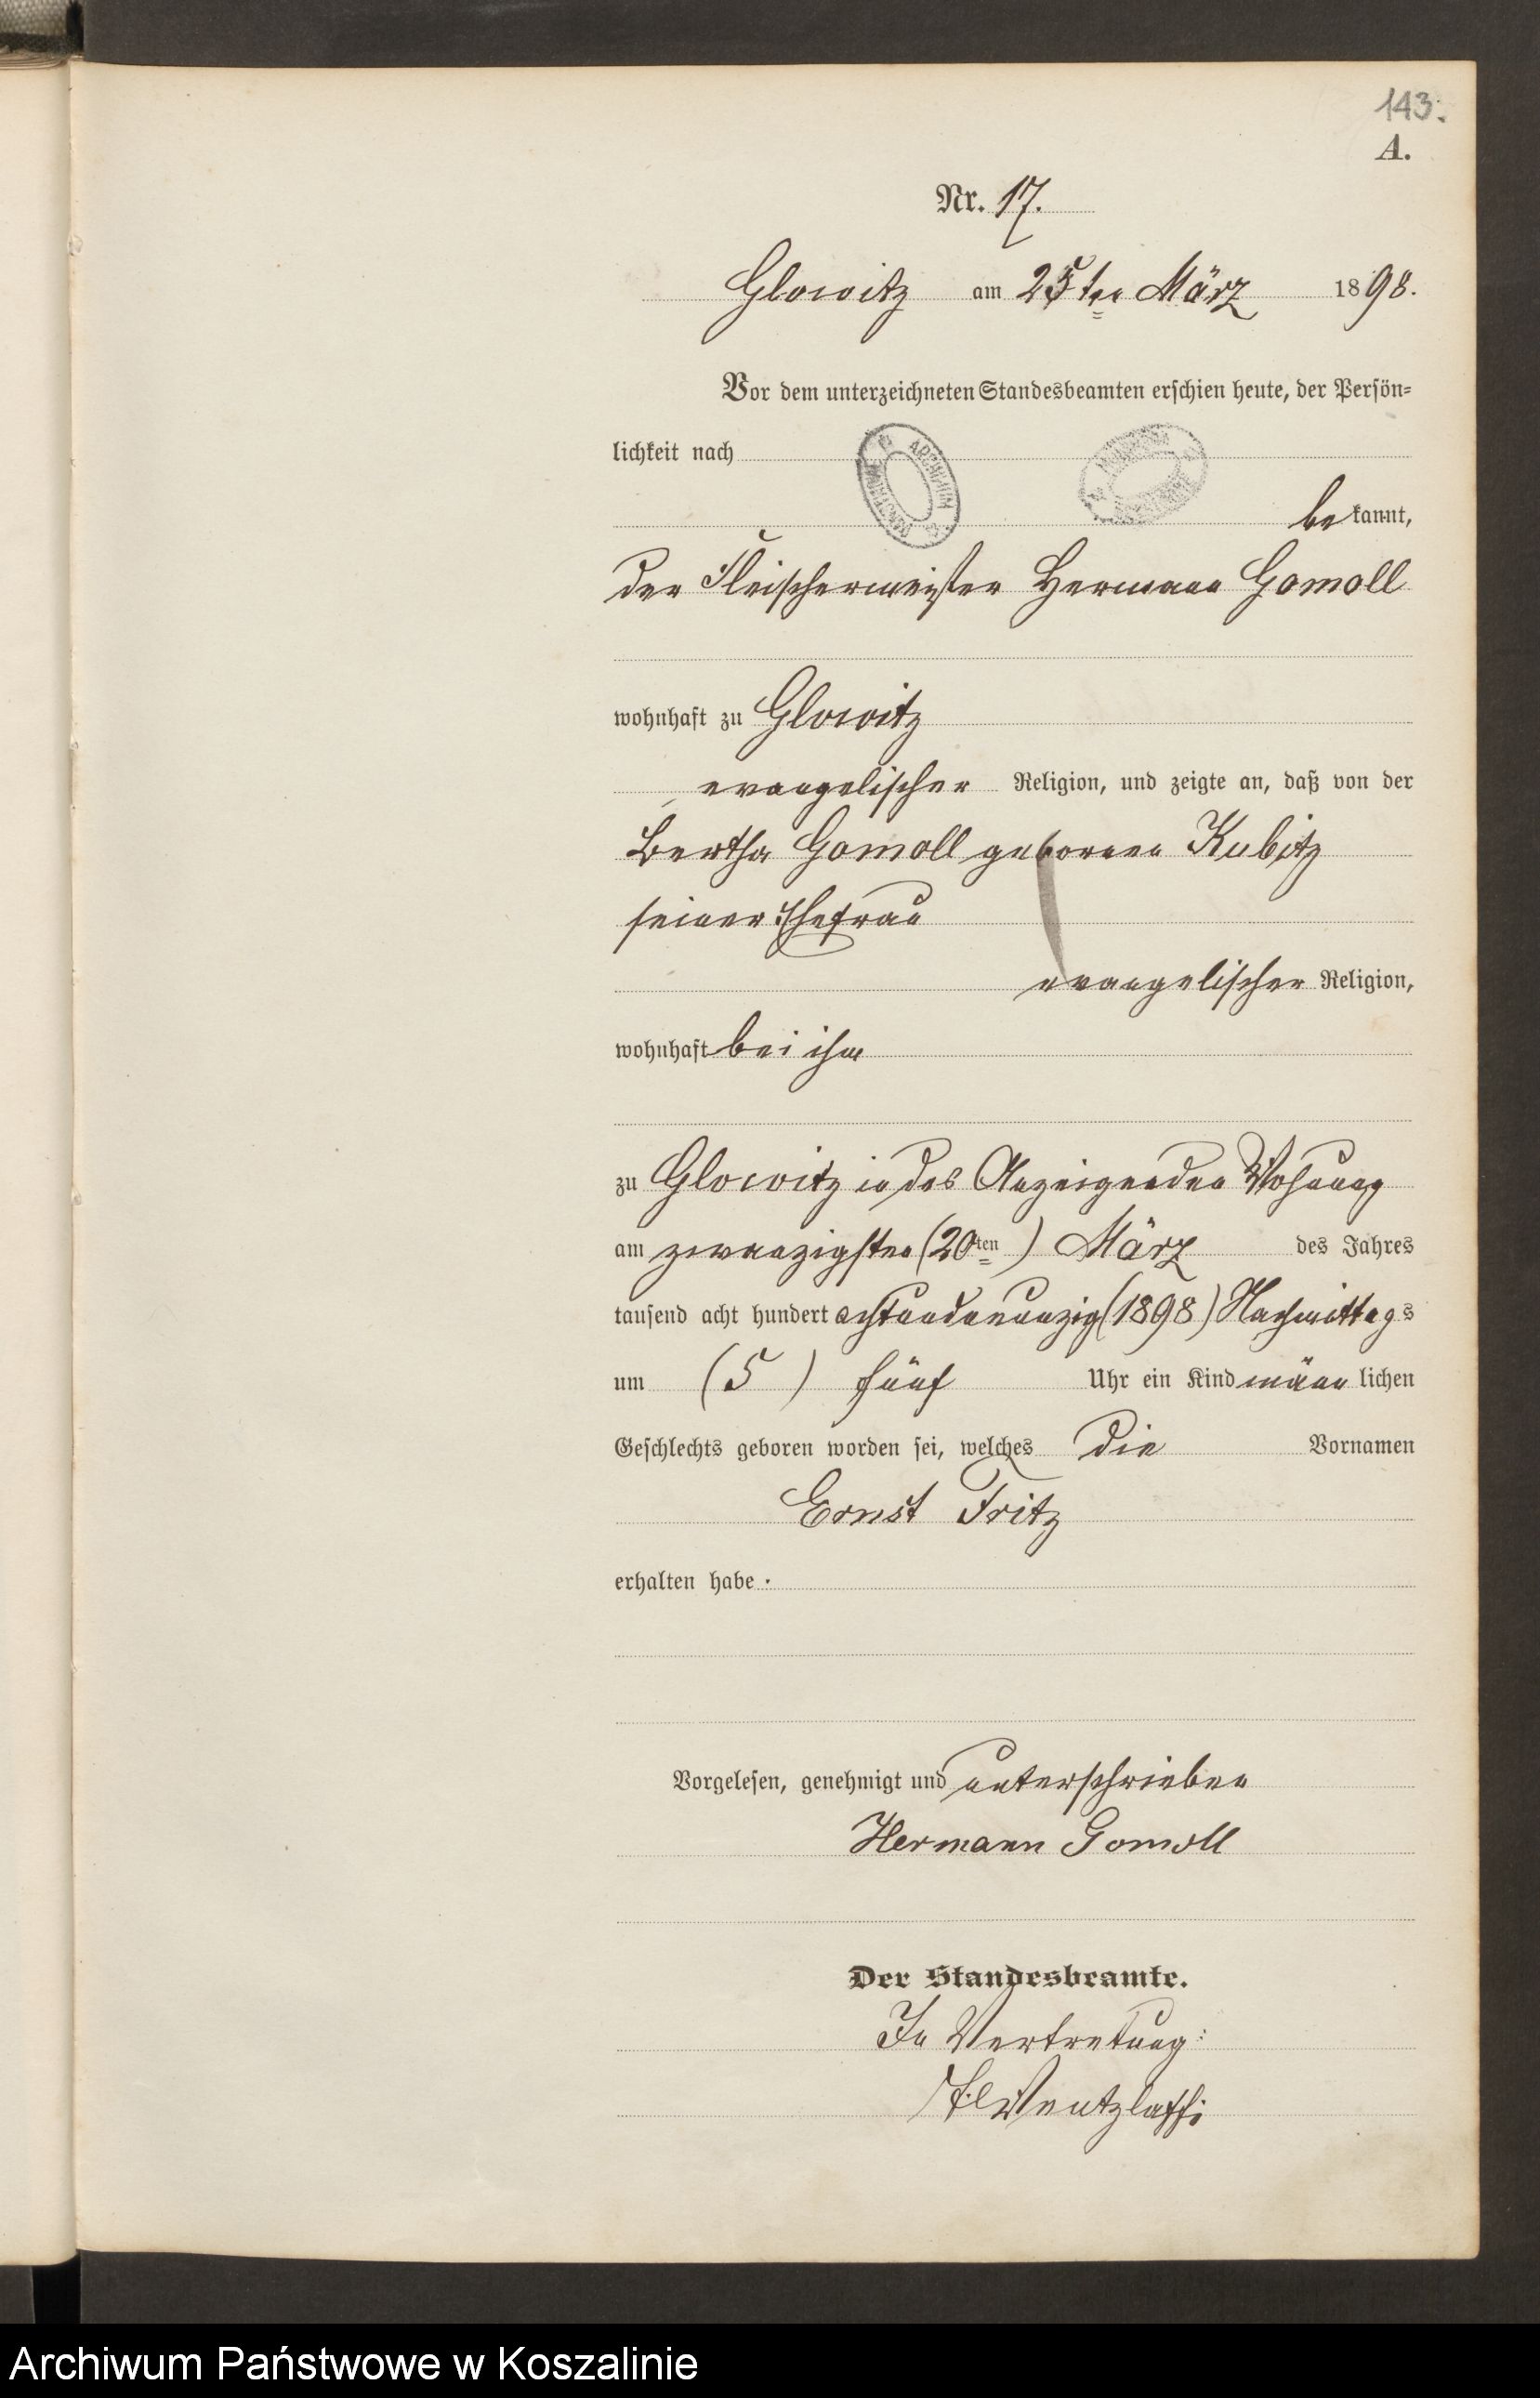 143.
A.
Nr. 17.
Glowitz am 25ten März 1898.
Vor dem unterzeichneten Standesbeamten erschien heute, der Persön-
lichkeit nach
bekannt,
der Fleischermeister Hermann Gomoll
wohnhaft zu Glowitz
evangelischer Religion, und zeigte an, daß von der
Bertha Gomoll geborenen Kubitz
seiner Ehefrau
evangelischer Religion,
wohnhaft bei ihm
zu Glowitz in des Anzeigenden Wohnung
am zwanzigsten (20ten) März des Jahres
tausend acht hundert achtundneunzig (1898) Nachmittags
um (5) fünf Uhr ein Kind männlichen
Geschlechts geboren worden sei, welches die Vornamen
Ernst Fritz
erhalten habe.
Vorgelesen, genehmigt und unterschrieben
Hermann Gomoll
Der Standesbeamte.
In Vertretung:
Archiwum Państwowe w Koszalinie